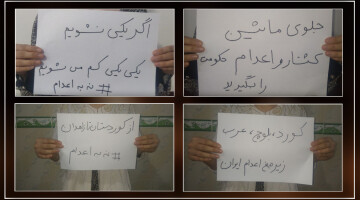 اگر یکی نشویم
یکی یکی کم می شویم
# نه به اعدام
جلوی ماشین
کشتار و اعدام حکومتی
را بگیرید
از کوردستان تا زاهدان
# نه به اعدام
کورد، بلوچ، عرب
زیر تیغ اعدام ایران